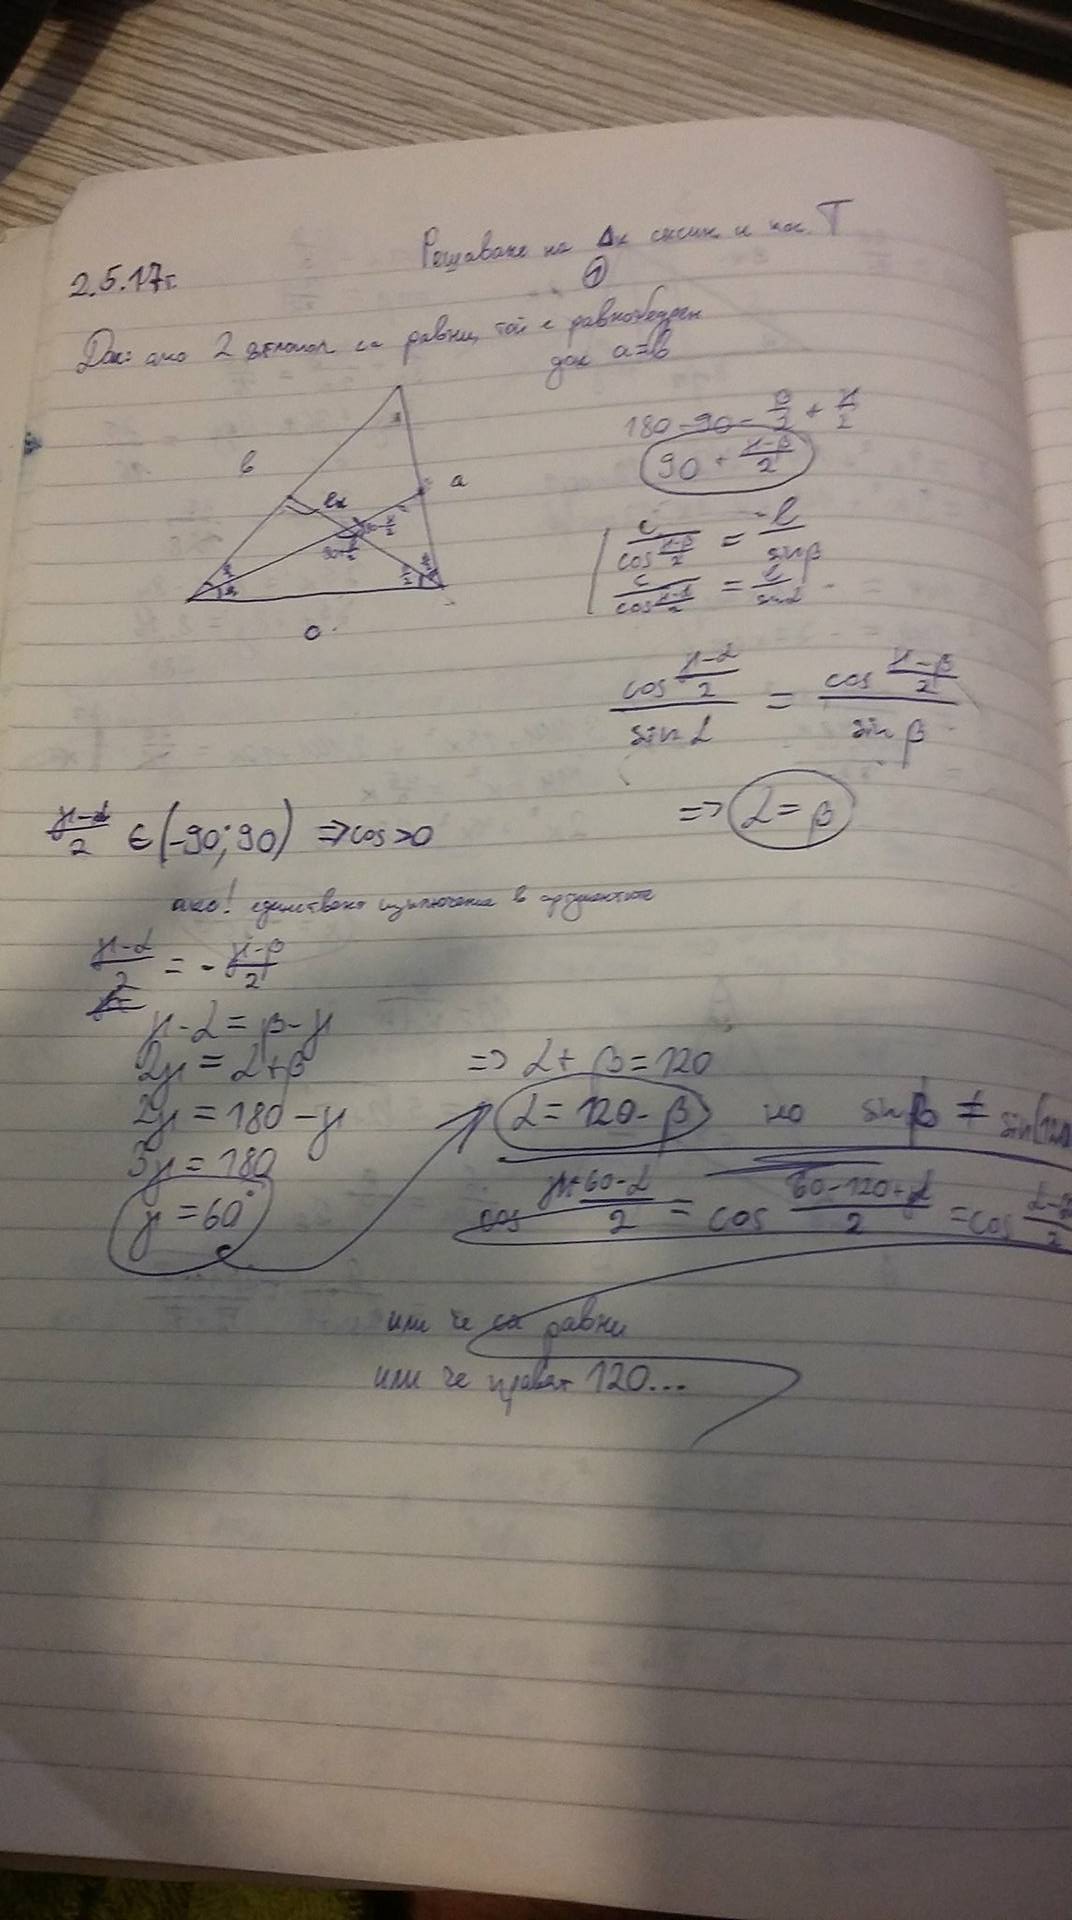 2.5.17г.
Решаване на Δк със син. и кос. Т
①
Док: ако 2 ъглопол. са равни, той е равнобедрен
док a=b
180-90-β/2+γ/2
90+(γ-β)/2
b
a
lα
c/cos((γ-β)/2) = l/sinβ
c/cos((γ-α)/2) = l/sinα
cos((γ-α)/2)/sinα = cos((γ-β)/2)/sinβ
=> α=β
(γ-α)/2 ∈ (-90;90) => cos>0
ако! единствено изключение в аргументите
(γ-α)/2 = -(γ-β)/2
γ-α=β-γ
2γ=α+β => α+β=120
2γ=180-γ
α=120-β но sinβ ≠ sin(120
3γ=180
γ=60°
cos (60-α)/2 = cos (60-120+α)/2 = cos
или че са равни
или че правят 120...